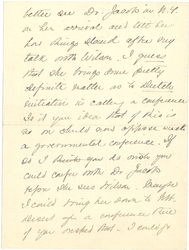 better see Dr. Jacobs in N.Y.
on her arrival and tell her
how things stand after my
talk with Wilson. I guess
that she brings some pretty
definite matter as to Dutch
initiative in calling a conference.
Is it your idea that if this is
so we should and oppose such
a governmental conference. If
so I think you do wish you
could confer with Dr. Jacobs
before she sees Wilson. Maybe
I could bring her down to Mt.
Desert if a conference there
if you wished that. I enclose